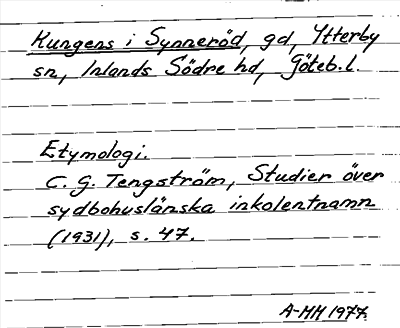 Kungens i Synneröd, gd, Ytterby
sn, Inlands Södre hd, Göteb.l.
Etymologi.
C. G. Tengström, Studier över
sydbohuslänska inkolentnamn
(1931), s. 47.
A-MH 1977.